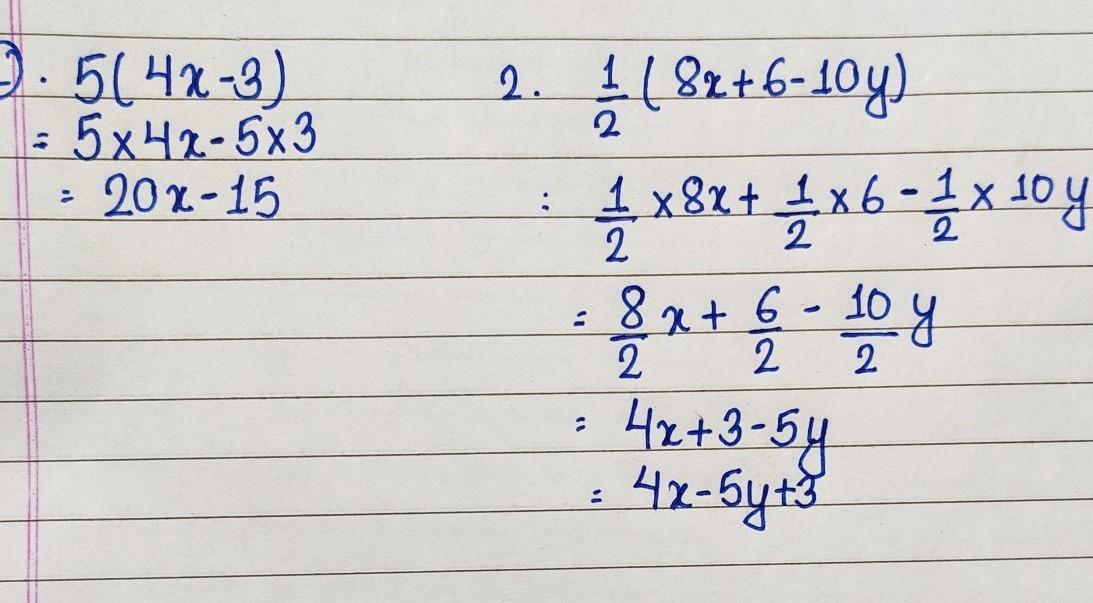 1. 5(4x-3)
= 5×4x-5×3
= 20x-15
2. 1/2 (8x+6-10y)
: 1/2 ×8x+ 1/2 ×6 - 1/2 × 10y
= 8/2 x + 6/2 - 10/2 y
= 4x+3-5y
= 4x-5y+3